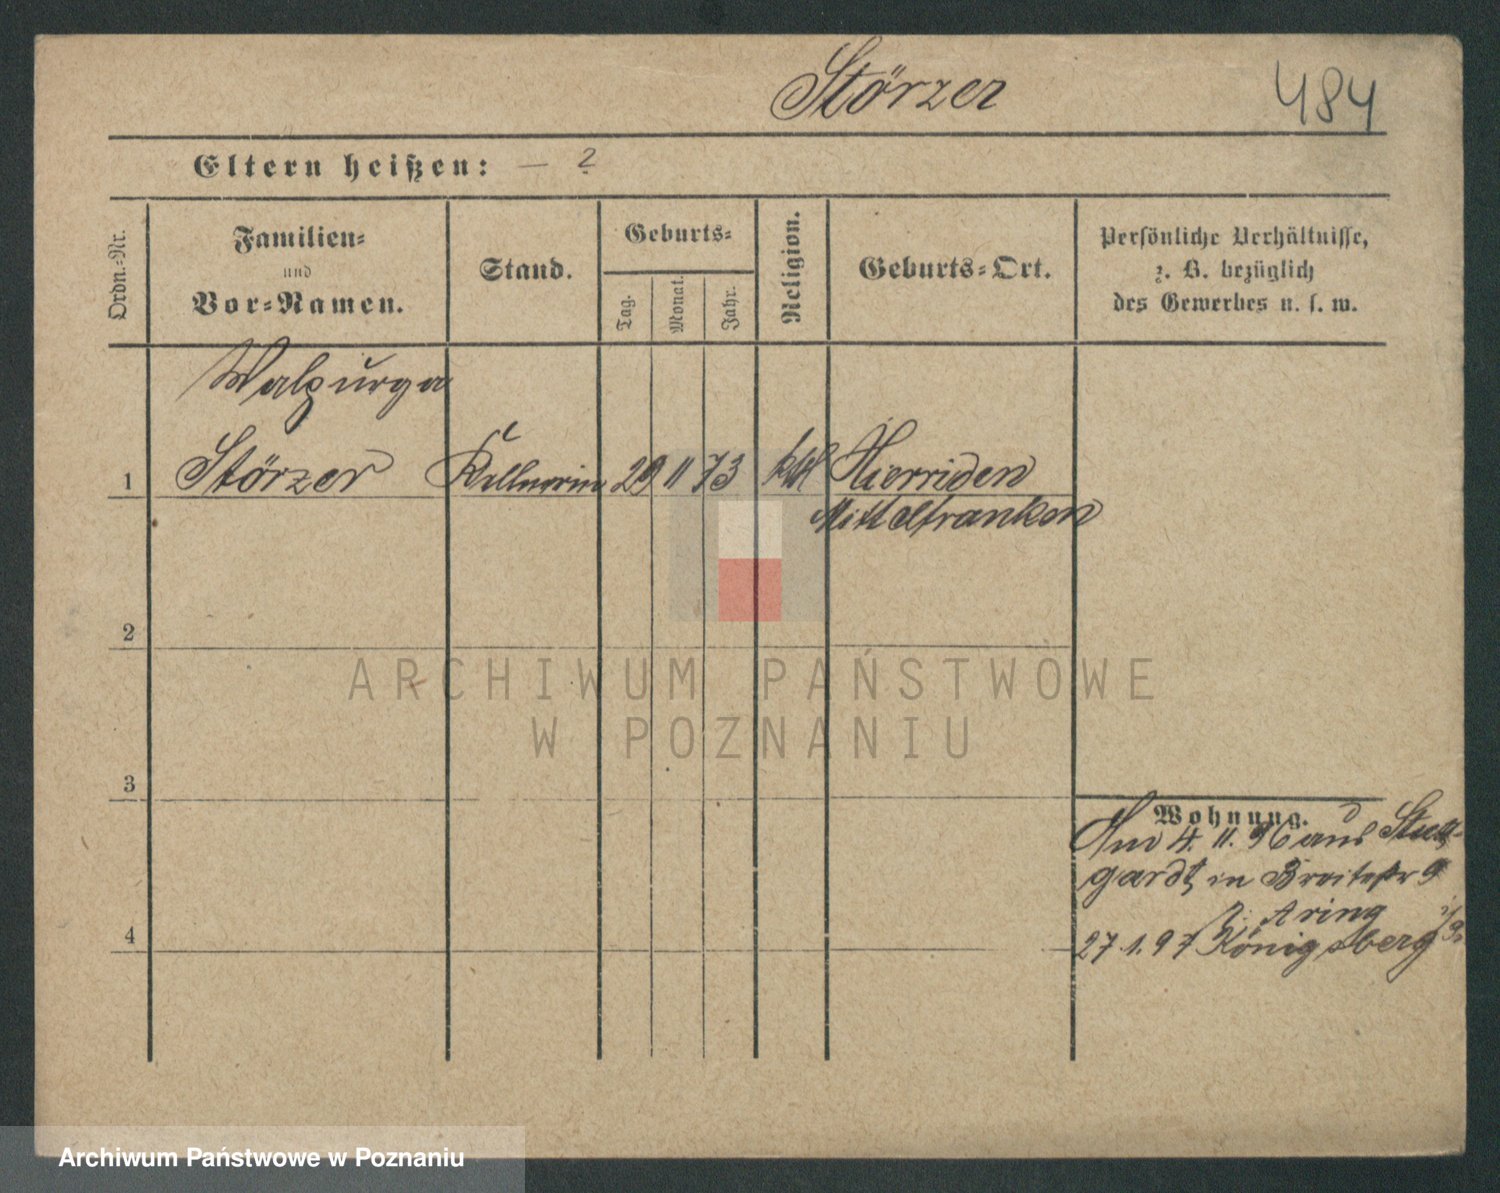 Störzer
484
Eltern heißen: — ?
Ordn.-Nr.
Familien-
und
Vor-Namen.
Stand.
Geburts-
Tag.
Monat.
Jahr.
Religion.
Geburts-Ort.
Persönliche Verhältnisse,
z. B. bezüglich
des Gewerbes u. s. w.
Walpurga
1 Störzer Kellnerin 29 11 73 kth Hierriden
Mittelfranken
2
3
4
Wohnung.
Am 4. 11. 96 aus Stutt-
gardt in Breitestr 9
b. Aring
27.1.97 Königsberg i/Pr
ARCHIWUM PAŃSTWOWE
W POZNANIU
Archiwum Państwowe w Poznaniu